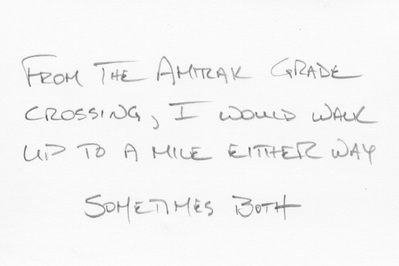 FROM THE AMTRAK GRADE
CROSSING, I WOULD WALK
UP TO A MILE EITHER WAY
SOMETIMES BOTH